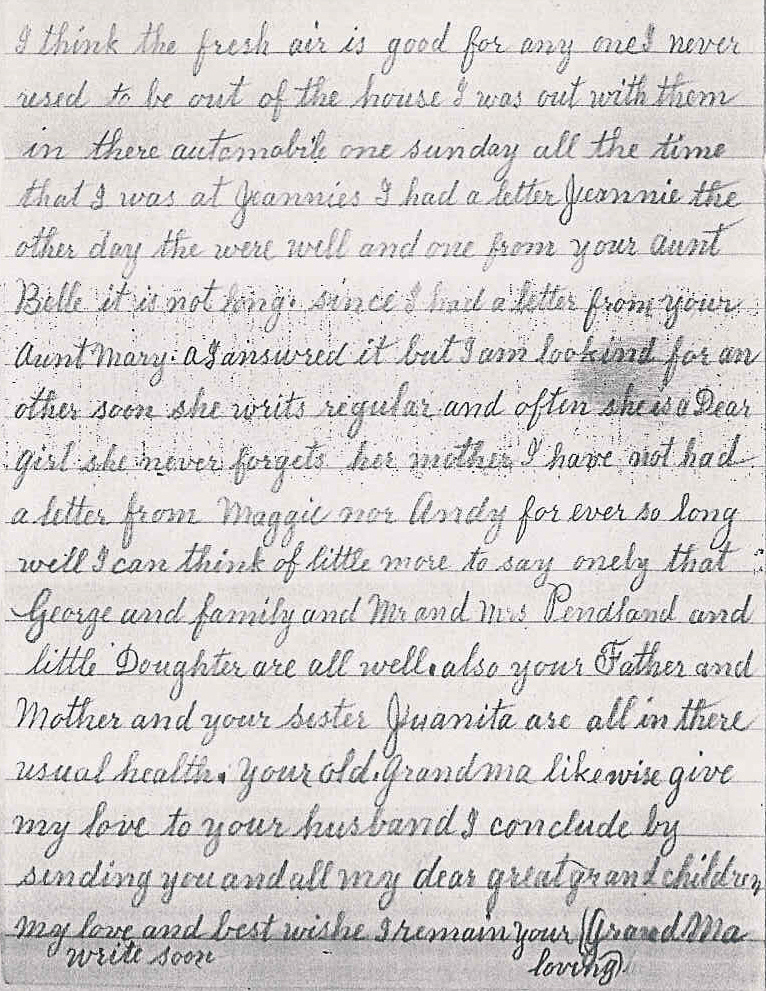 I think the fresh air is good for any one I never
used to be out of the house I was out with them
in there automobile one sunday all the time
that I was at Jeannies I had a letter Jeannie the
other day the were well and one from your aunt
Belle it is not long. since I had a letter from your
Aunt Mary. a I answred it but I am lookind for an
other soon she writs regular and often she is a Dear
girl she never forgets her mother I have not had
a letter from Maggie nor Andy for ever so long
well I can think of little more to say onely that
George and family and Mr and Mrs Pendland and
little Doughter are all well. also your Father and
Mother and your sister Juanita are all in there
usual health. Your old. Grandma likewise give
my love to your husband I conclude by
sinding you and all my dear great grand children
my love and best wishe I remain your (Grand Ma
write soon loving)